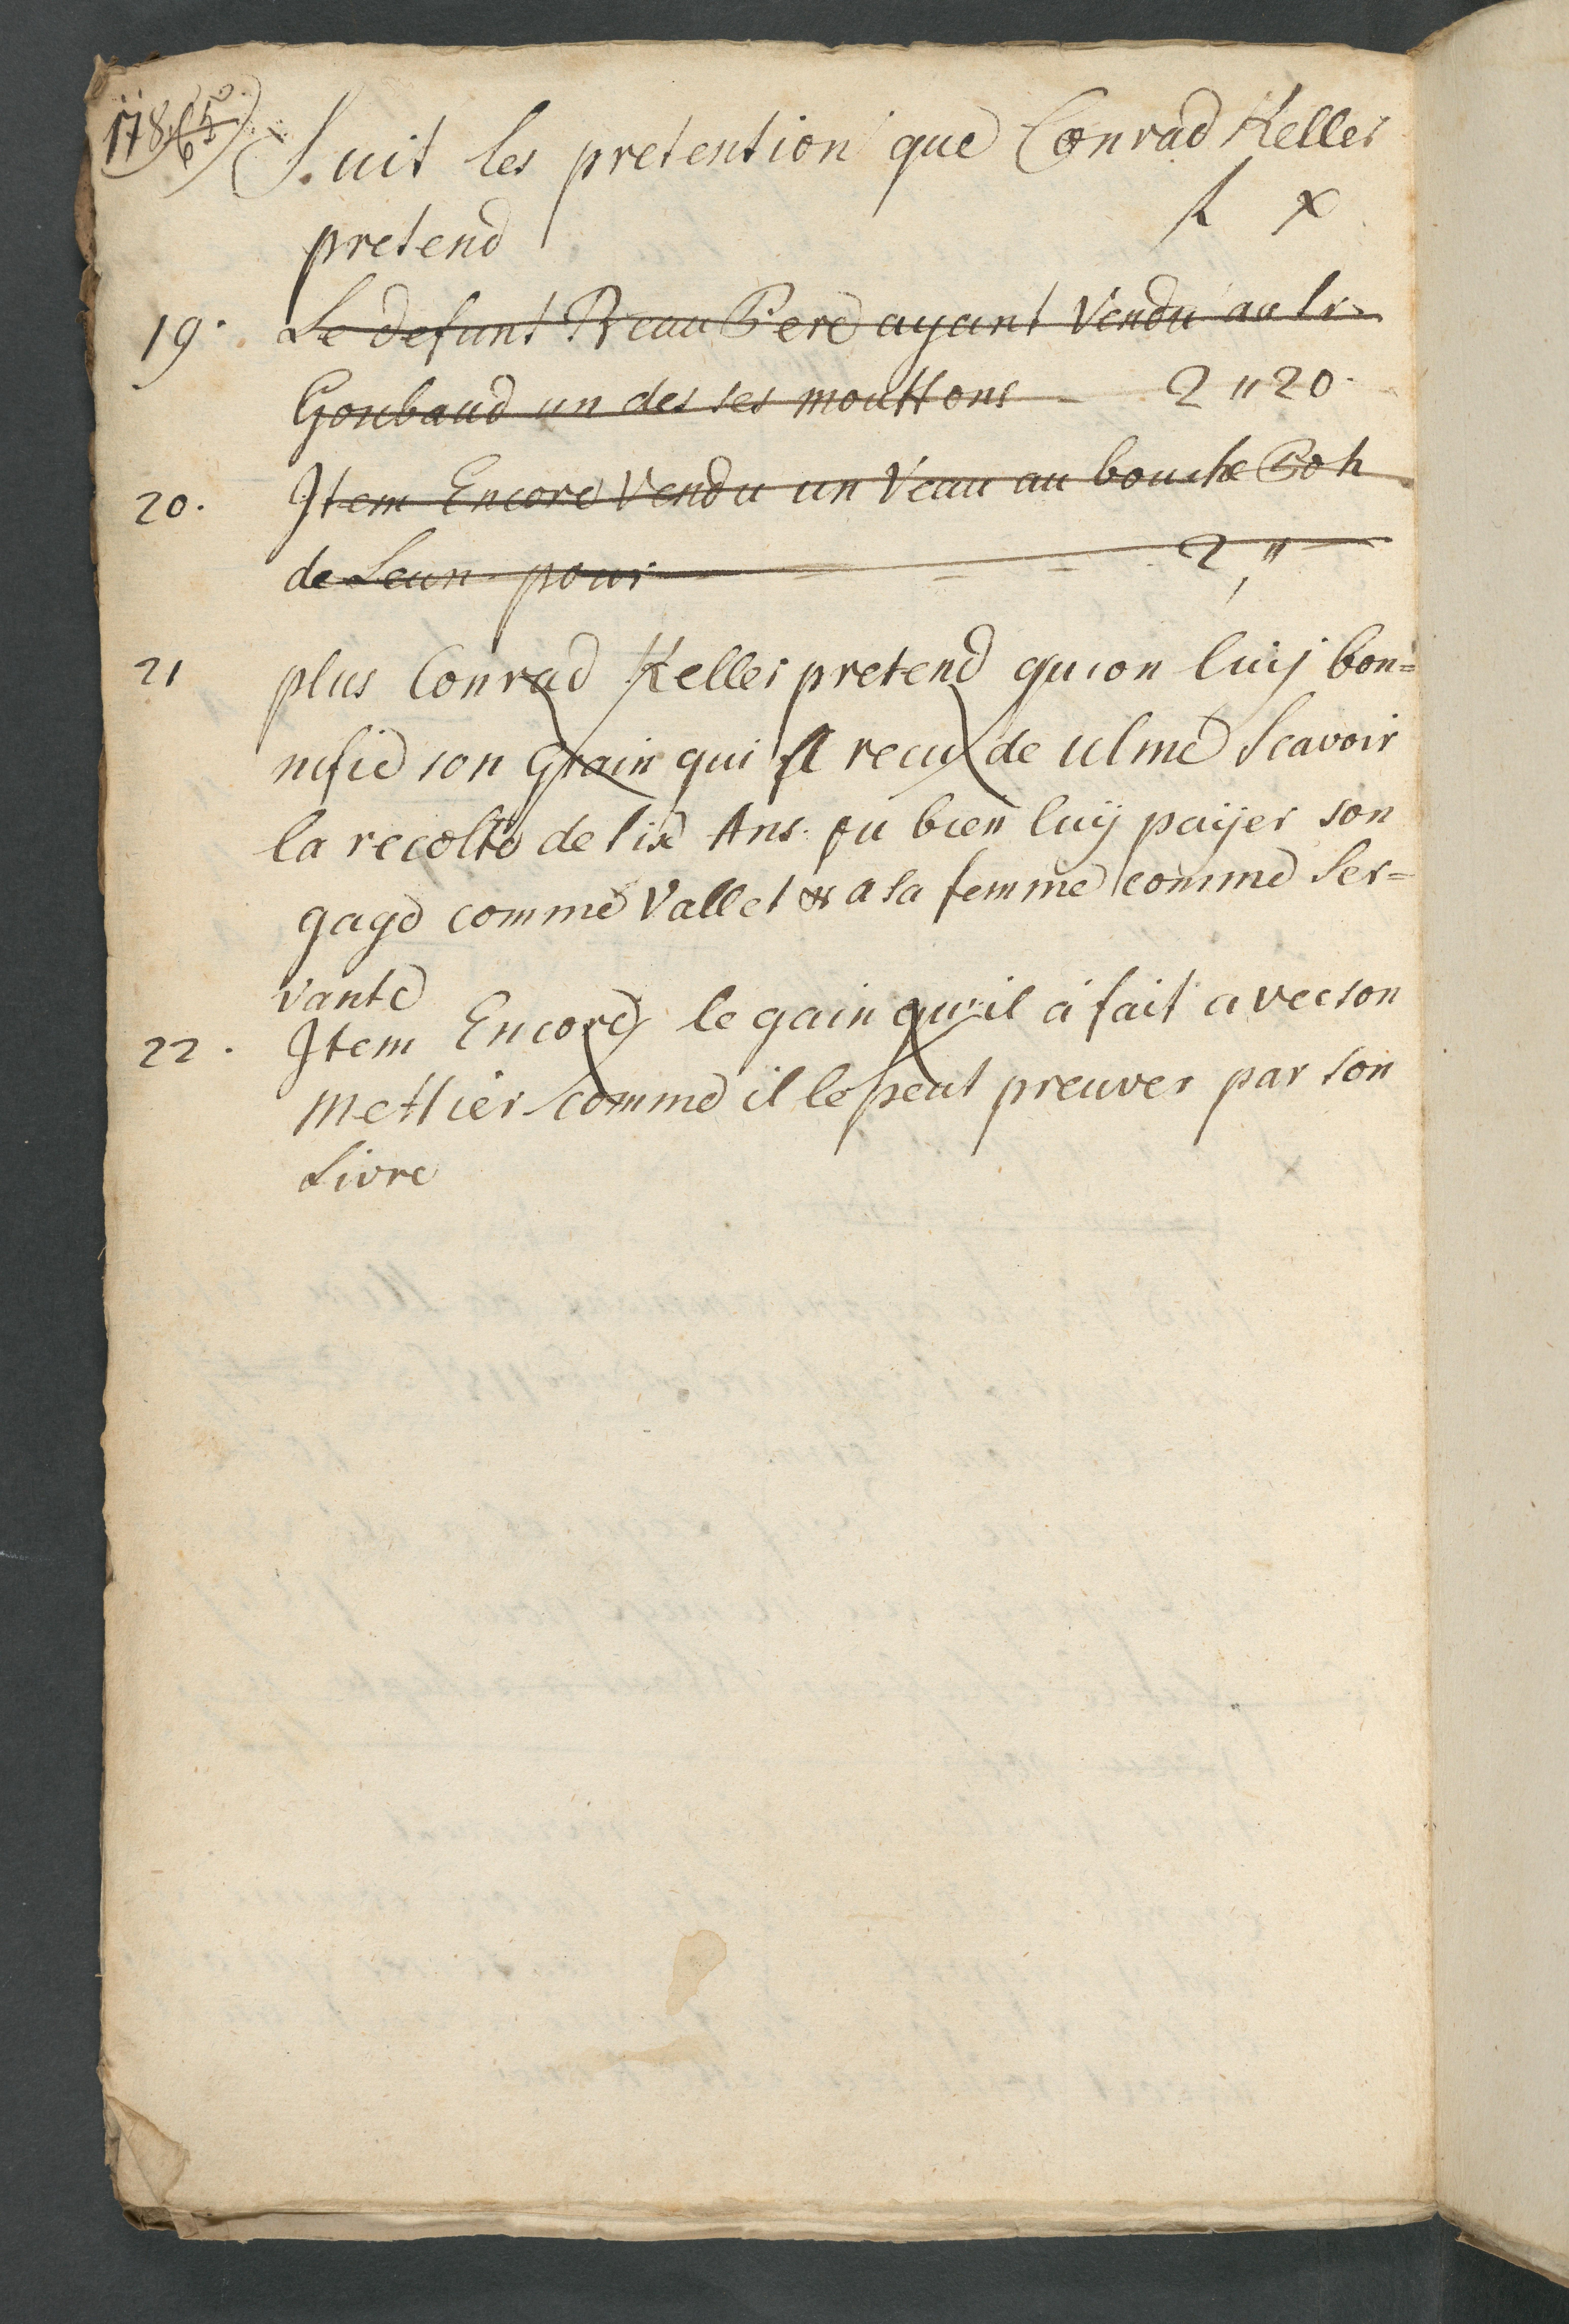 178.
Suit les pretention que Conrad Keller
pretend fl x
19. Le defunt Beau Pere ayant Vendu au Sr.
Goubaud un des ses mouttons - 2 " 20.
20. Item Encore Vendu un Veau au bouche Roh
de Leun pour = = 2 "
21 plus Conrad Keller pretend qu'on luij bon=
nifie son Grain qui A recu de ulme Scavoir
la recolte de six Ans. ou bien luij paijer son
gage comme Vallet & a sa femme comme Ser=
vante
22. Item Encore le gain qu'il a fait avec son
Mettier comme il le peut preuver par son
Livre